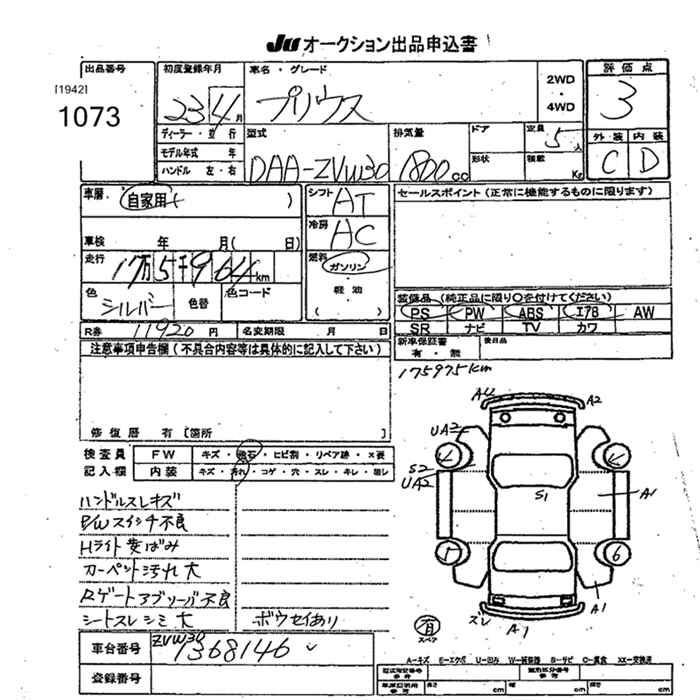 JU オークション出品申込書
出品番号
[1942]
1073
初度登録年月
23 4 月
車名・グレード
プリウス
2WD
・
4WD
評価点
3
外装 内装
C D
ディーラー・並行
モデル年式 年
ハンドル 左・右
型式
DAA-ZVW30
排気量
1800cc
ドア
形状
定員
5人
積載
Kg
車歴
自家用
( )
車検 年 月( 日)
走行
17万5千964km
色
シルバー
色替
色コード
R券 11920 円
名変期限 月 日
シフト
AT
冷房
AC
燃料
ガソリン
・
軽油
( )
セールスポイント(正常に機能するものに限ります)
装備品(純正品に限り○を付けてください)
PS PW ABS エアB AW
SR ナビ TV カワ
新車保証書
有・無
後日品
注意事項申告欄(不具合内容等は具体的に記入して下さい)
修復歴 有 [箇所
175975km
検査員
記入欄
FW
キズ・飛石・ヒビ割・リペア跡・×要
内装
キズ・汚れ・コゲ・穴・スレ・キレ・
ハンドルスレキズ
P/Wスイッチ不良
Hライト黄ばみ
カーペント汚れ大
Rゲートアブソーバー不良
シートスレシミ大
ボウセイあり
A2
A2
UA2
S2
UA2
S1
A1
A1
4
4
5
6
ズレ
A1
有
スペア
車台番号
ZVW30
1368146
登録番号
A-キズ E-エクボ U-凹み W-補修跡 S-サビ C-腐食 XX-交換済
長さ cm 幅 cm 高さ cm